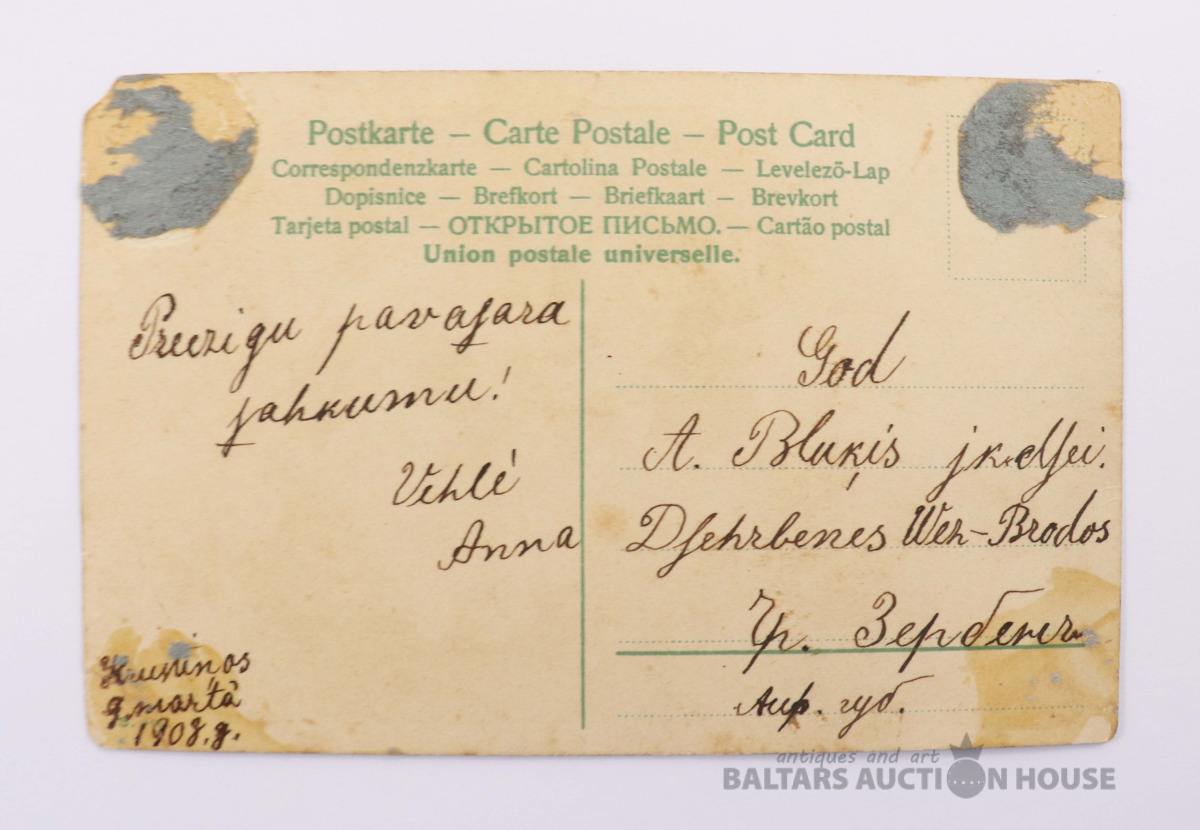 Postkarte – Carte Postale – Post Card
Correspondenzkarte – Cartolina Postale – Levelező-Lap
Dopisnice – Brefkort – Briefkaart – Brevkort
Tarjeta postal – ОТКРЫТОЕ ПИСЬМО. – Cartão postal
Union postale universelle.
Preezigu pavaſara
jahkumu!
Vehlé
Anna
9. martā
1908. g.
God
A. Bluķis jk.
Dſehrbenes Wez-Brodos
Чр. Зербенъ
Лиф. губ.
antiques and art
BALTARS AUCTION HOUSE